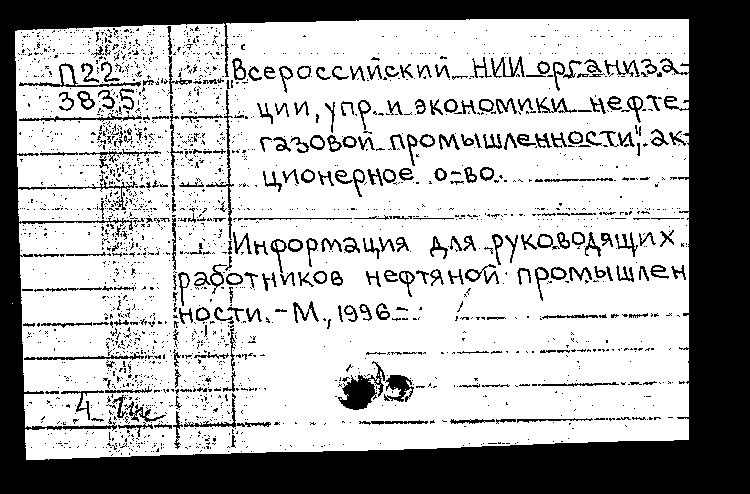 П22
3835
Всероссийский НИИ организа-
ции, упр. и экономики нефте-
газовой промышленности", ак-
ционерное о-во.
Информация для руководящих
работников нефтяной промышлен
ности. - М., 1996 -
4